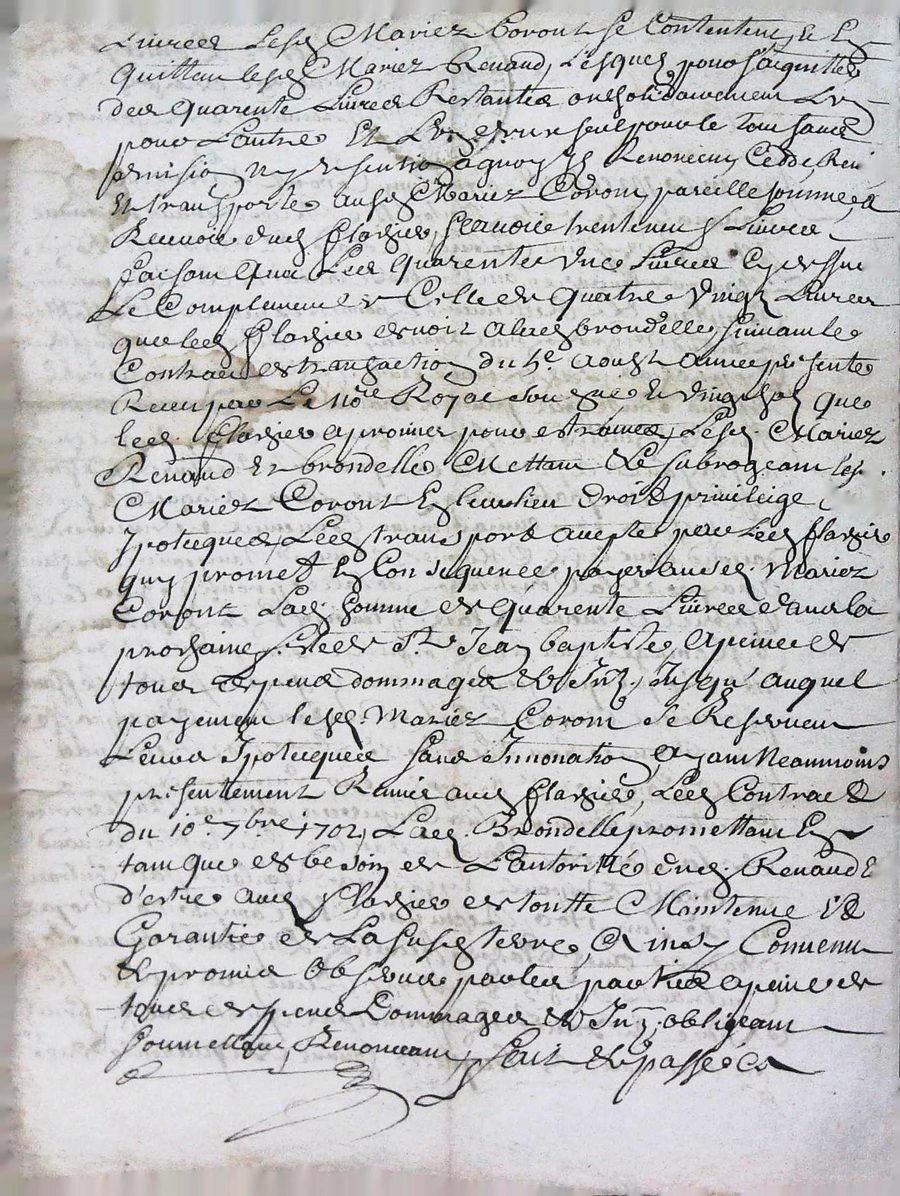 Livres Lesd Mariez Coront se Contentent, et En
Quittent lesd Mariez Renaud, Lesquels pour s'acquitter
des Quarente Livres Restantes ont solidairement L'un
pour L'autre Et L'un d'eux seul pour le tout sans
division ny à quoy Ils Renoncent, Cedde, Remi
Et transporte ausd Mariez Coront, pareille somme, à
Recevoir dud flassier, scavoir trenteneuf Livres
faisant que Les Quarente une Livres Cy dessus
Le Complement de Celle de Quatre vingt Livres
que led flassier devoit à lad brondelle, suivant le
Contract de transaction du 5e Aoust année presente
Receu par Le Nore Royal sousigné et vingt sols que
led. flassier a promis pour estraines, Lesd. Mariez
Renaud Et brondelle Mettant et subrogeant lesd.
Mariez Coront En leur lieu droit privileige
Ipotecques, Led transport accepté par Led flassier
quy promet En Consequence payer ausd. Mariez
Coront Lad. somme de Quarente Livres dans la
prochaine feste de St. Jean baptiste, a peine de
tous depens dommages et Int., Jusqu'auquel
payement lesd. Mariez Coront se Reservent
Leurs Ipotecques sans Innovation, ayant Neanmoins
presentement Remis aud flassier, Led Contract
du 10e 7bre 1702, Lad. Brondelle promettant En
tant que de besoin de L'autorité dud. Renaud
d'estre aud flassier de toutte Maintenue Et
Garantie de La susd terre, Ainsy Convenu
et promis Observer par les parties a peine de
tous depens Dommages et Int. obligeant
soumettant, Renonceant, fait et passé à